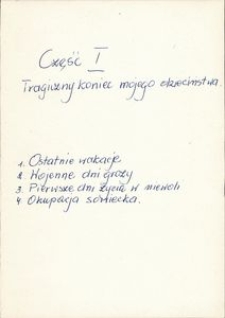 Część I
Tragiczny koniec mojego dzieciństwa.
1. Ostatnie wakacje
2. Wojenne dni grozy
3. Pierwsze dni życia w niewoli
4. Okupacja sowiecka.